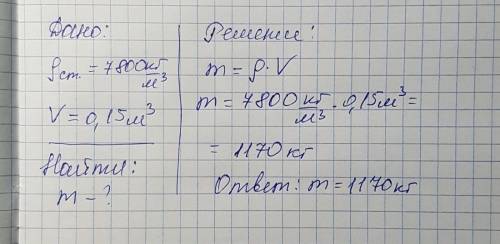 Дано:
ρст. = 7800 кг/м³
V = 0,15 м³
Найти:
m - ?
Решение:
m = ρ · V
m = 7800 кг/м³ · 0,15 м³ =
= 1170 кг
Ответ: m = 1170 кг